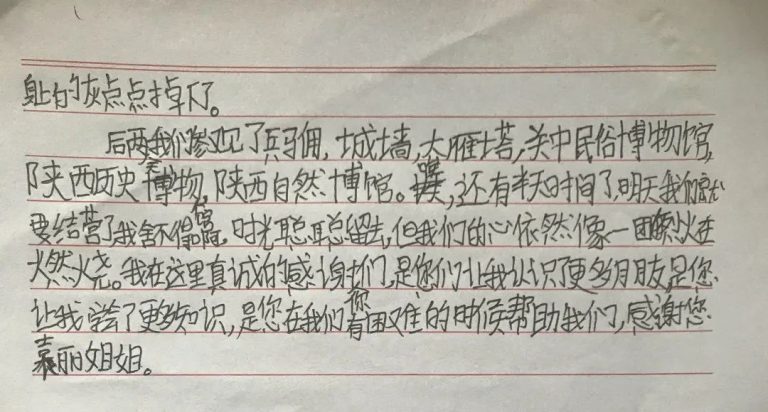 身上的灰点点掉下了。
后两天我们参观了兵马俑,城墙,大雁塔,关中民俗博物馆,
陕西历史博物,陕西自然博馆。唉,还有半天时间了,明天我们就
要结营了我舍不得你们。时光匆匆留去,但我们的心依然像一团火在
燃烧。我在这里真诚的感谢们,是您们让我认识了更多朋友,是您
让我学会了更多知识,是您在我们有困难的时候帮助我们,感谢您
嘉丽姐姐。